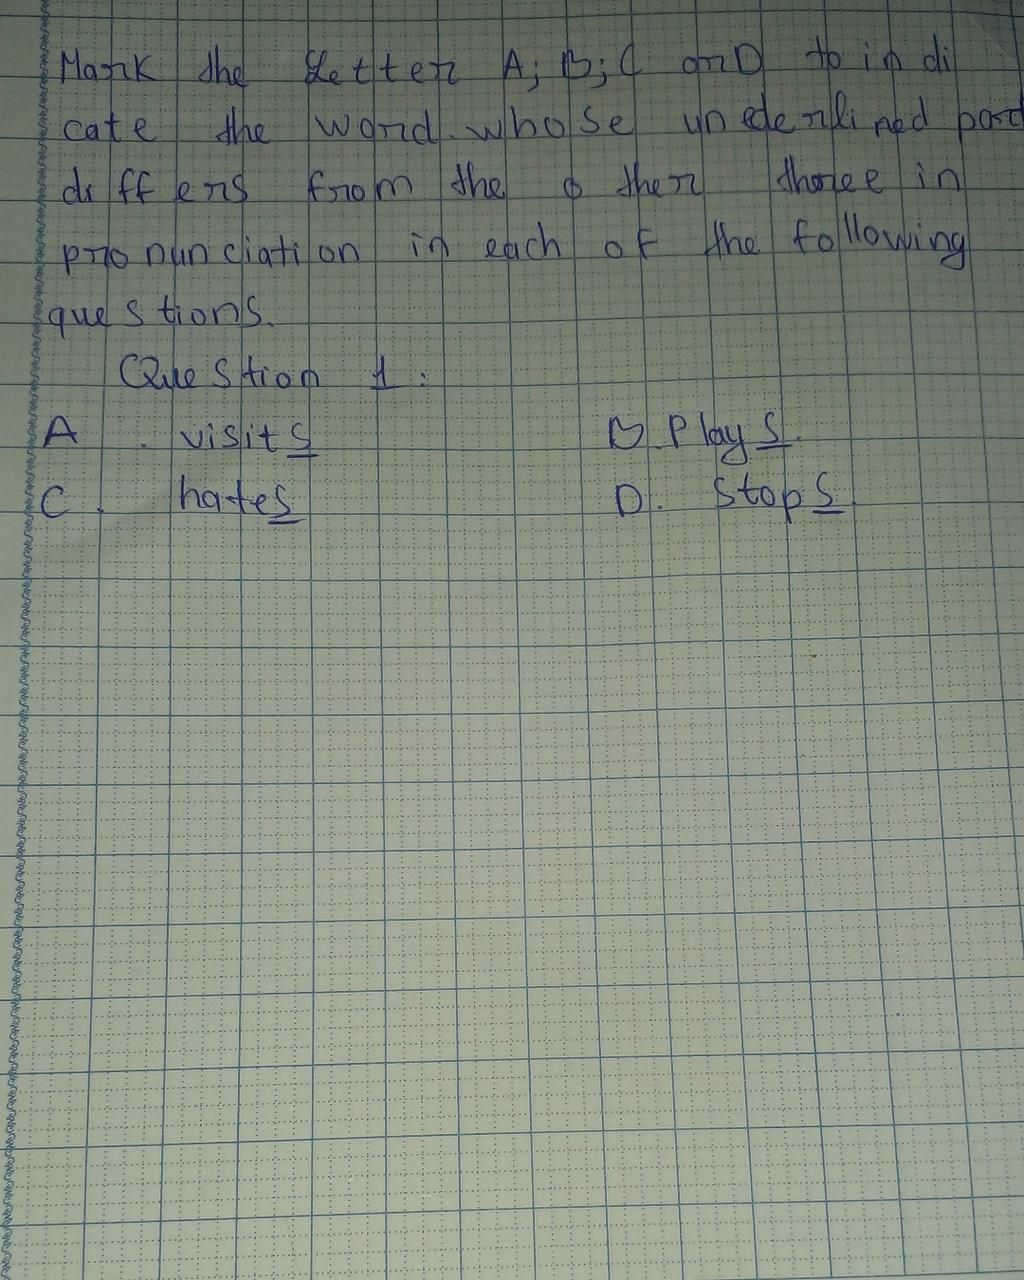 Mark the letter A; B; C or D to indi
cate the word whose unederlined part
differs from the other three in
pronunciation in each of the following
questions.
Question 1:
A. visits B. Plays.
C hates D. stops